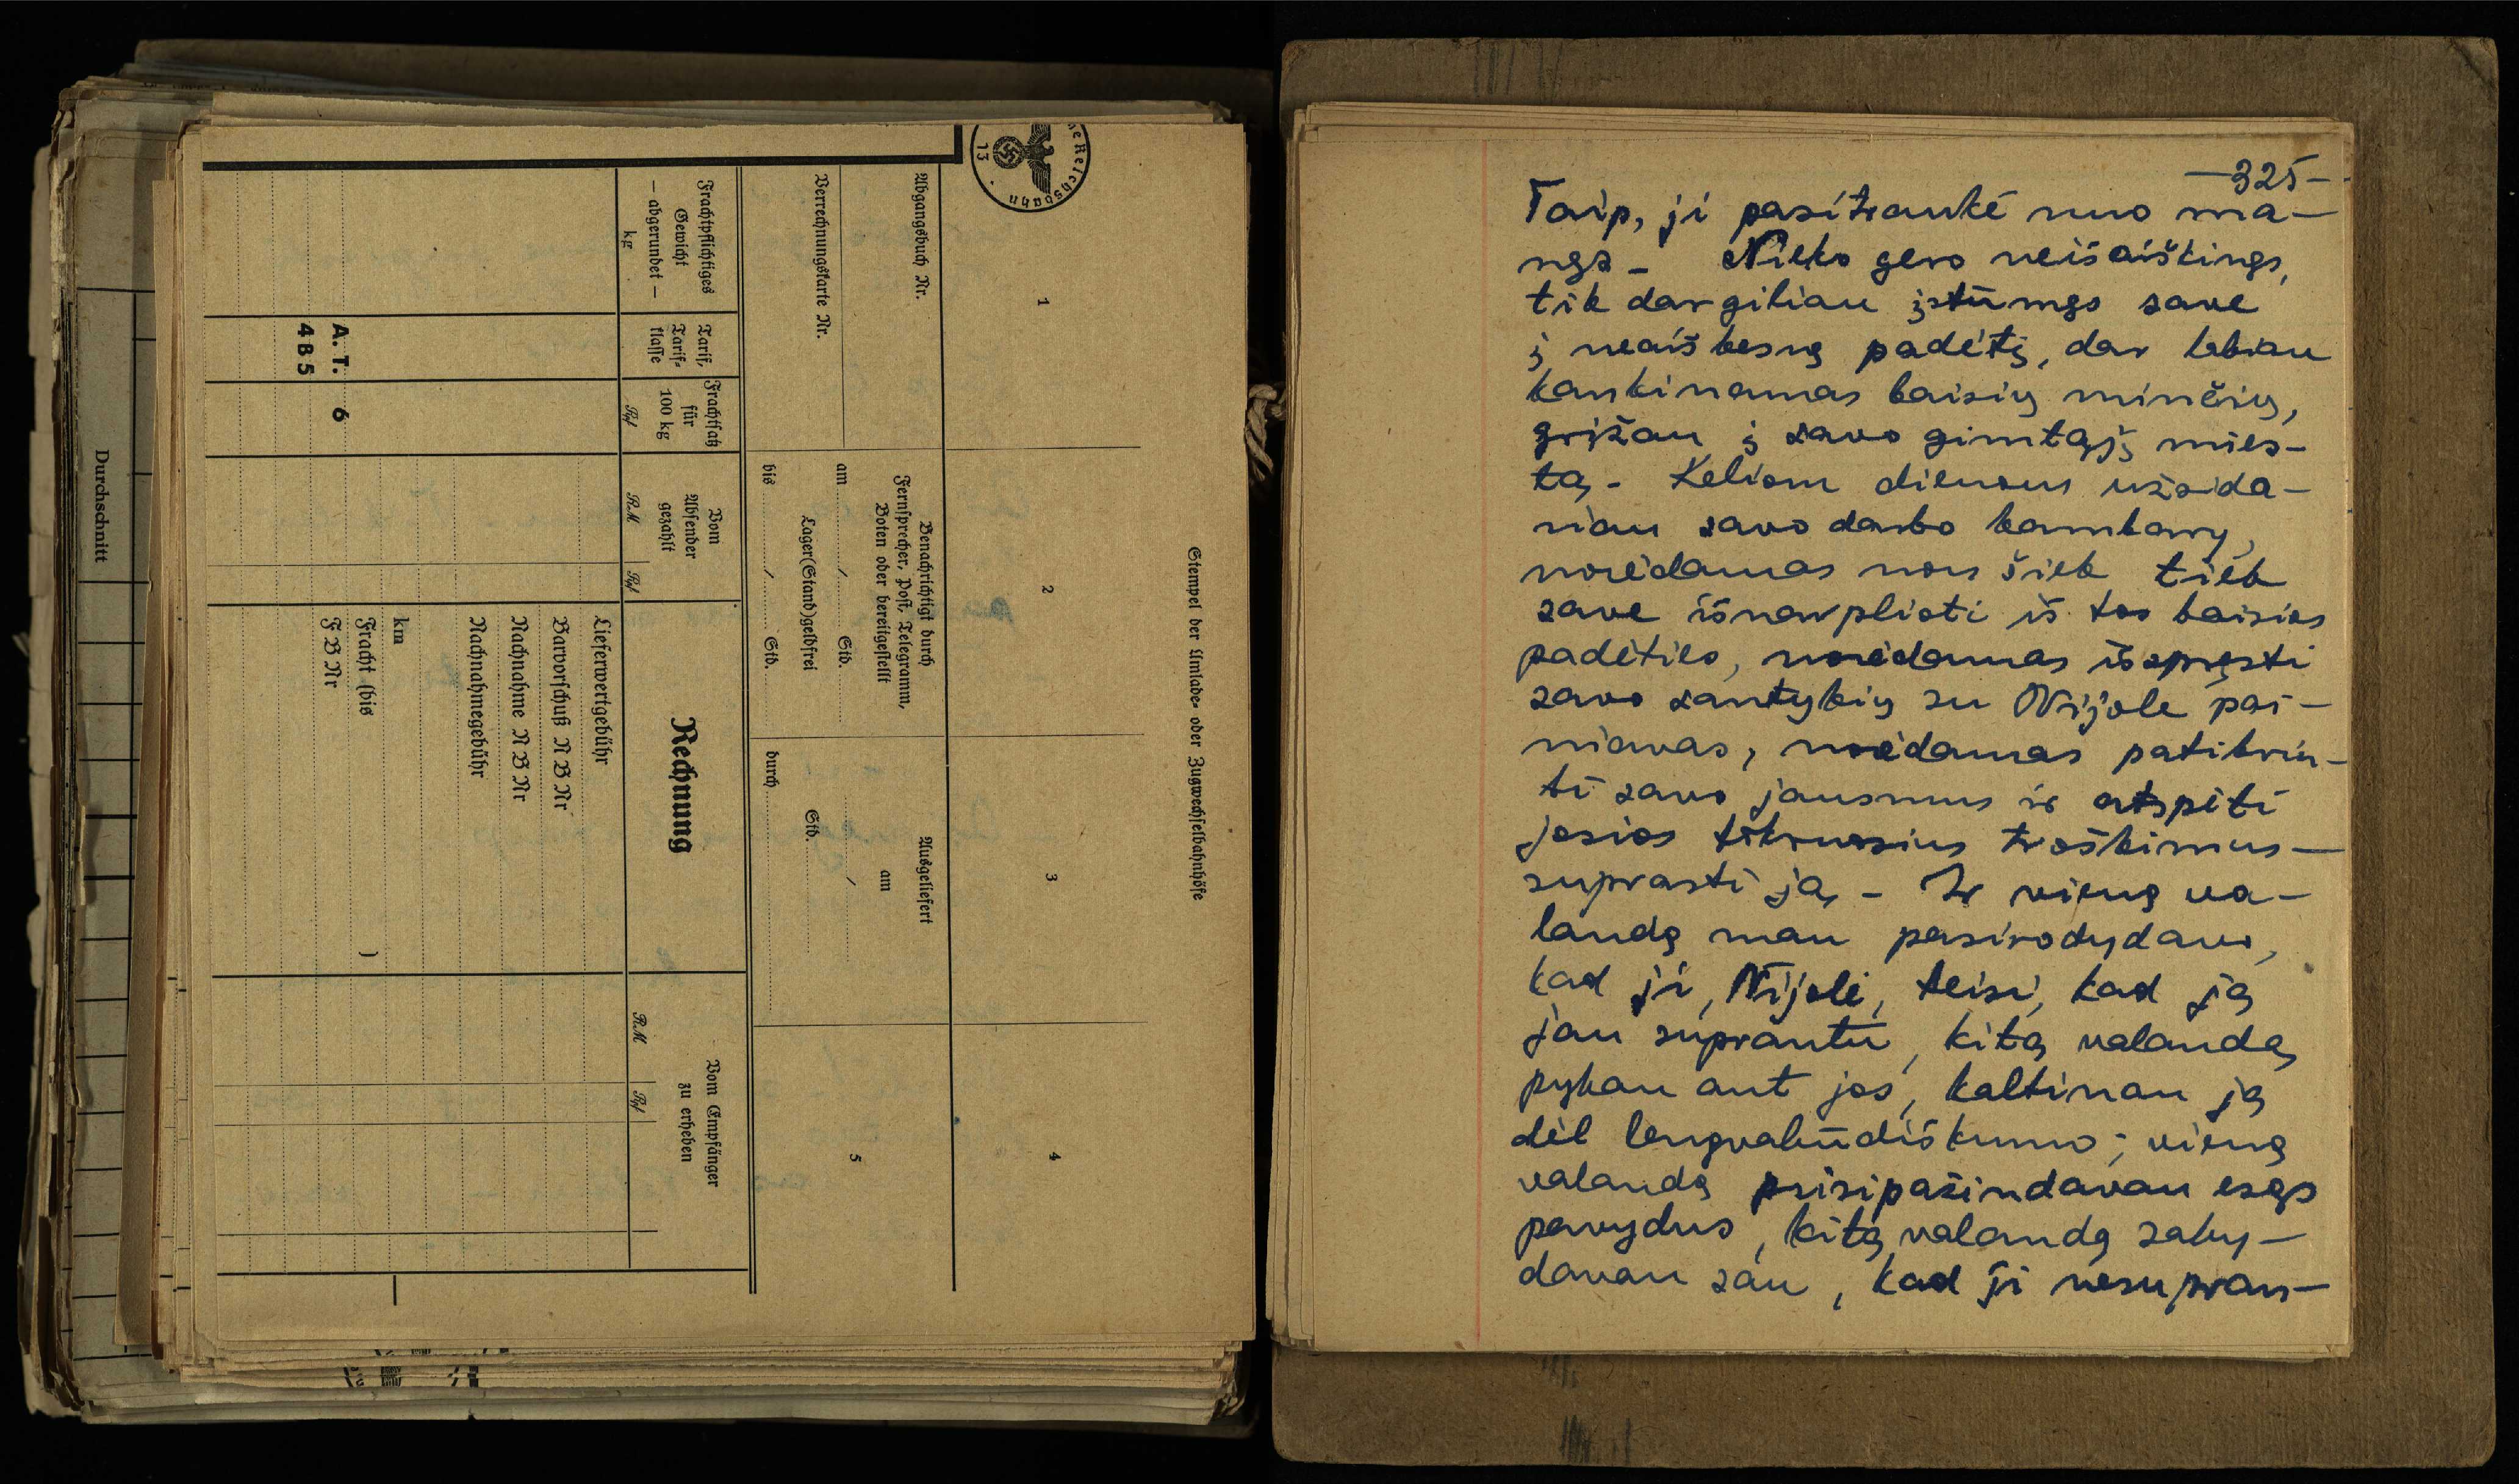 Durchschnitt
Reichsbahn
13
Stempel der Umlade- oder Zugwechselbahnhöfe
1
2
3
4
Abgangsbuch Nr.
Verrechnungskarte Nr.
Benachrichtigt durch
Fernsprecher, Post, Telegramm,
Boten oder bereitgestellt
am / Std.
Lager(Stand)geldfrei
bis / Std.
Ausgeliefert
am
/
Std.
durch
5
Frachtpflichtiges
Gewicht
— abgerundet —
kg
Tarif,
Tarif-
klasse
Frachtsatz
für
100 kg
Rpf
Vom
Absender
gezahlt
RM Rpf
Rechnung
Vom Empfänger
zu erheben
RM Rpf
Lieferwertgebühr
Barvorschuß N B Nr
Nachnahme N B Nr
Nachnahmegebühr
km
Fracht (bis )
F B Nr
A. T. 6
4 B 5
—325—
Taip, ji pasitraukė nuo ma-
nęs – Nieko gero neišaiškinęs,
tik dar giliau įstūmęs save
į neaiškesnę padėtį, dar labiau
kankinamas baisių minčių,
grįžau į savo gimtąjį mies-
tą. Keliom dienom užsida-
riau savo darbo kambary,
norėdamas nors šiek tiek
save išnarplioti iš tos baisios
padėties, norėdamas išspręsti
savo santykių su Nijole pai-
niavas, norėdamas patikrin-
ti savo jausmus ir atspėti
josios tikruosius troškimus –
suprasti ją – Ir vieną va-
landą man pasirodydavo,
kad ji, Nijolė, teisi, kad ją
jau suprantu, kitą valandą
pykau ant jos, kaltinau ją
dėl lengvabūdiškumo; vieną
valandą prisipažindavau esąs
pavydus, kitą valandą saky-
davau sau, kad ji nesupran-